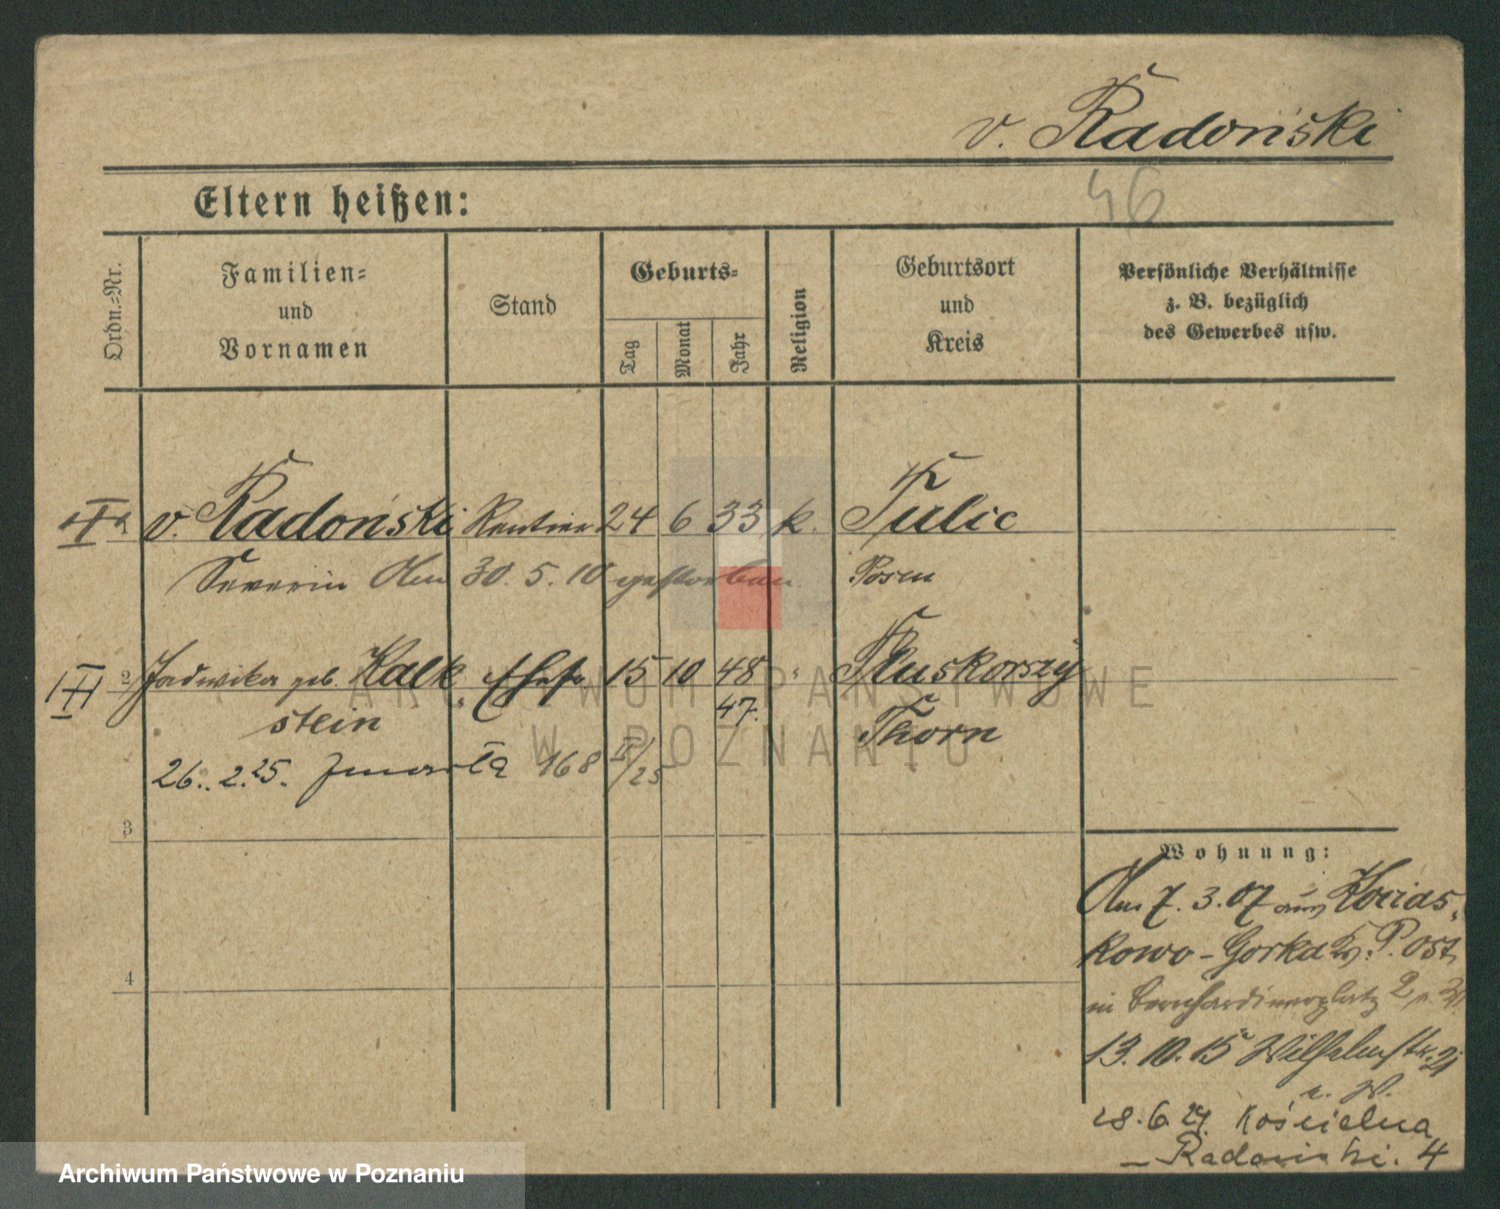 v. Radoński
46
Eltern heißen:
Ordn.-Nr.
Familien-
und
Vornamen
Stand
Geburts-
Tag
Monat
Jahr
Religion
Geburtsort
und
Kreis
Persönliche Verhältnisse
z. B. bezüglich
des Gewerbes usw.
v. Radoński Rentier 24 6 33 k. Tulic
Severin Am 30. 5. 10 gestorben Posen
2 Jadwika geb. Kalk Ehefr 15 10 48 " Pluskorszy
stein 47. Thorn
26. 2. 25. Zmarła 168 II/25
3
4
Wohnung:
Am 7. 3. 07 aus Kocias-
kowo-Gorka P. Ost
in Bernhardinerplatz 2
13. 10. 15 Wilhelmstr. 21
28. 6. 24 Kościelna
Radoński. 4
ARCHIWUM PAŃSTWOWE
W POZNANIU
Archiwum Państwowe w Poznaniu